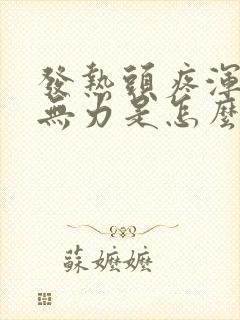 發熱頭疼渾
無力是怎麼
蘇嬤嬤